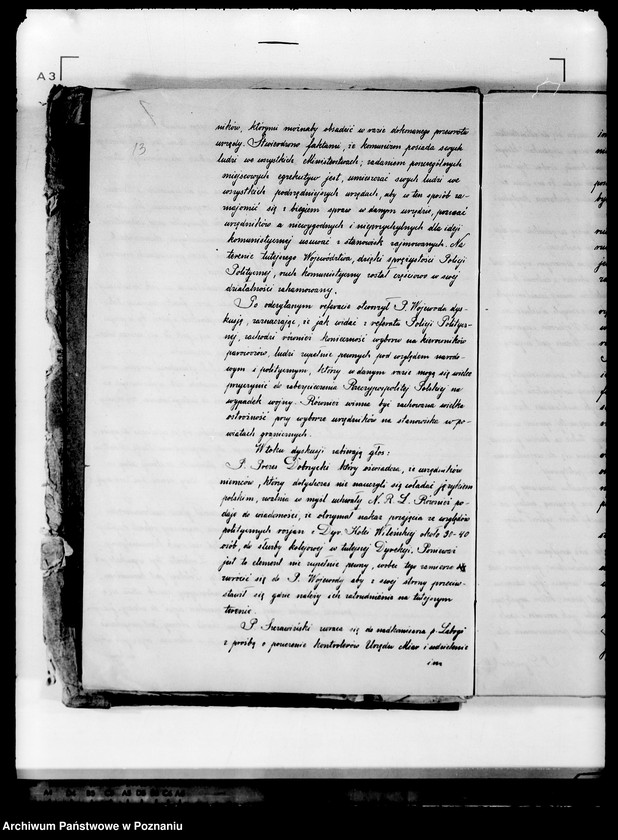 A3
13
ników, którymi możnaby obsadzić w razie dokonanego przewrotu
urzędy. Stwierdzono faktami, że komunizm posiada swych
ludzi we wszystkich Ministerstwach; zadaniem poszczególnych
miejscowych egzekutyw jest, umieszczać swych ludzi we
wszystkich podrzędniejszych urzędach, aby w ten sposób za-
znajomić się z biegiem spraw w danym urzędzie, poznać
urzędników a niewygodnych i nieprzychylnych dla ideji
komunistycznej usuwać z stanowisk zajmowanych. Na
terenie tutejszego Województwa, dzięki sprężystości Policji
Politycznej, ruch komunistyczny został częściowo w swej
działalności zahamowany.
Po odczytanym referacie otworzył P. Wojewoda dys-
kusję, zaznaczając, że jak widać z referatu Policji Politycz-
nej, zachodzi również konieczność wyboru na kierowników
parowozów, ludzi zupełnie pewnych pod względem narodo-
wym i politycznym, którzy w danym razie mogą się wielce
przyczynić do zabezpieczenia Rzeczypospolitej Polskiej na
wypadek wojny. Również winna być zachowana wielka
ostrożność przy wyborze urzędników na stanowiska w po-
wiatach granicznych.
W toku dyskusji zabierają głos:
P. Prezes Dobrzycki który oświadcza, że urzędników
niemców, którzy dotychczas nie nauczyli się władać językiem
polskim, zwalnia w myśl uchwały N. R. L. Również po-
daje do wiadomości, że otrzymał nakaz przejęcia ze względów
politycznych rosjan z Dyr. Kolei Wileńskiej około 30-40
osób, do służby kolejowej w tutejszej Dyrekcji. Ponieważ
jest to element nie zupełnie pewny, wobec tego zamierza
zwrócić się do P. Wojewody aby z swej strony przeciw-
stawił się gdzie należy ich zatrudnieniu na tutejszym
terenie.
P. Szczawiński zwraca się do nadkomisarza p.
z prośbą o pouczenie kontrolerów Urzędu Miar i udzielenie
im
Archiwum Państwowe w Poznaniu